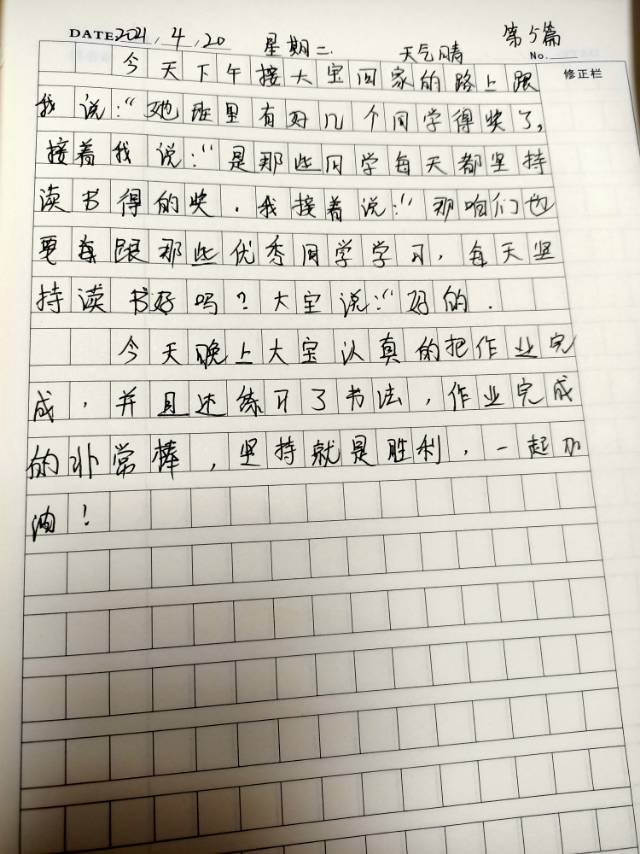 DATE 2021.4.20 星期二. 天气晴 第5篇 No.
修正栏
今天下午接大宝回家的路上跟
我说:“她班里有好几个同学得奖了,
接着我说:“是那些同学每天都坚持
读书得的奖.我接着说:“那咱们也
要每跟那些优秀同学学习,每天坚
持读书好吗?大宝说:“好的.
今天晚上大宝认真的把作业完
成,并且还练习了书法,作业完成
的非常棒,坚持就是胜利,一起加
油!